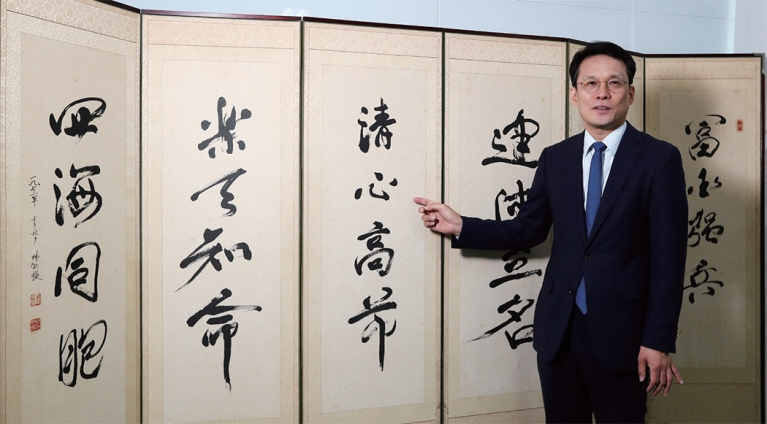 富國强兵
建 立名
清心高節
樂天知命
四海同胞